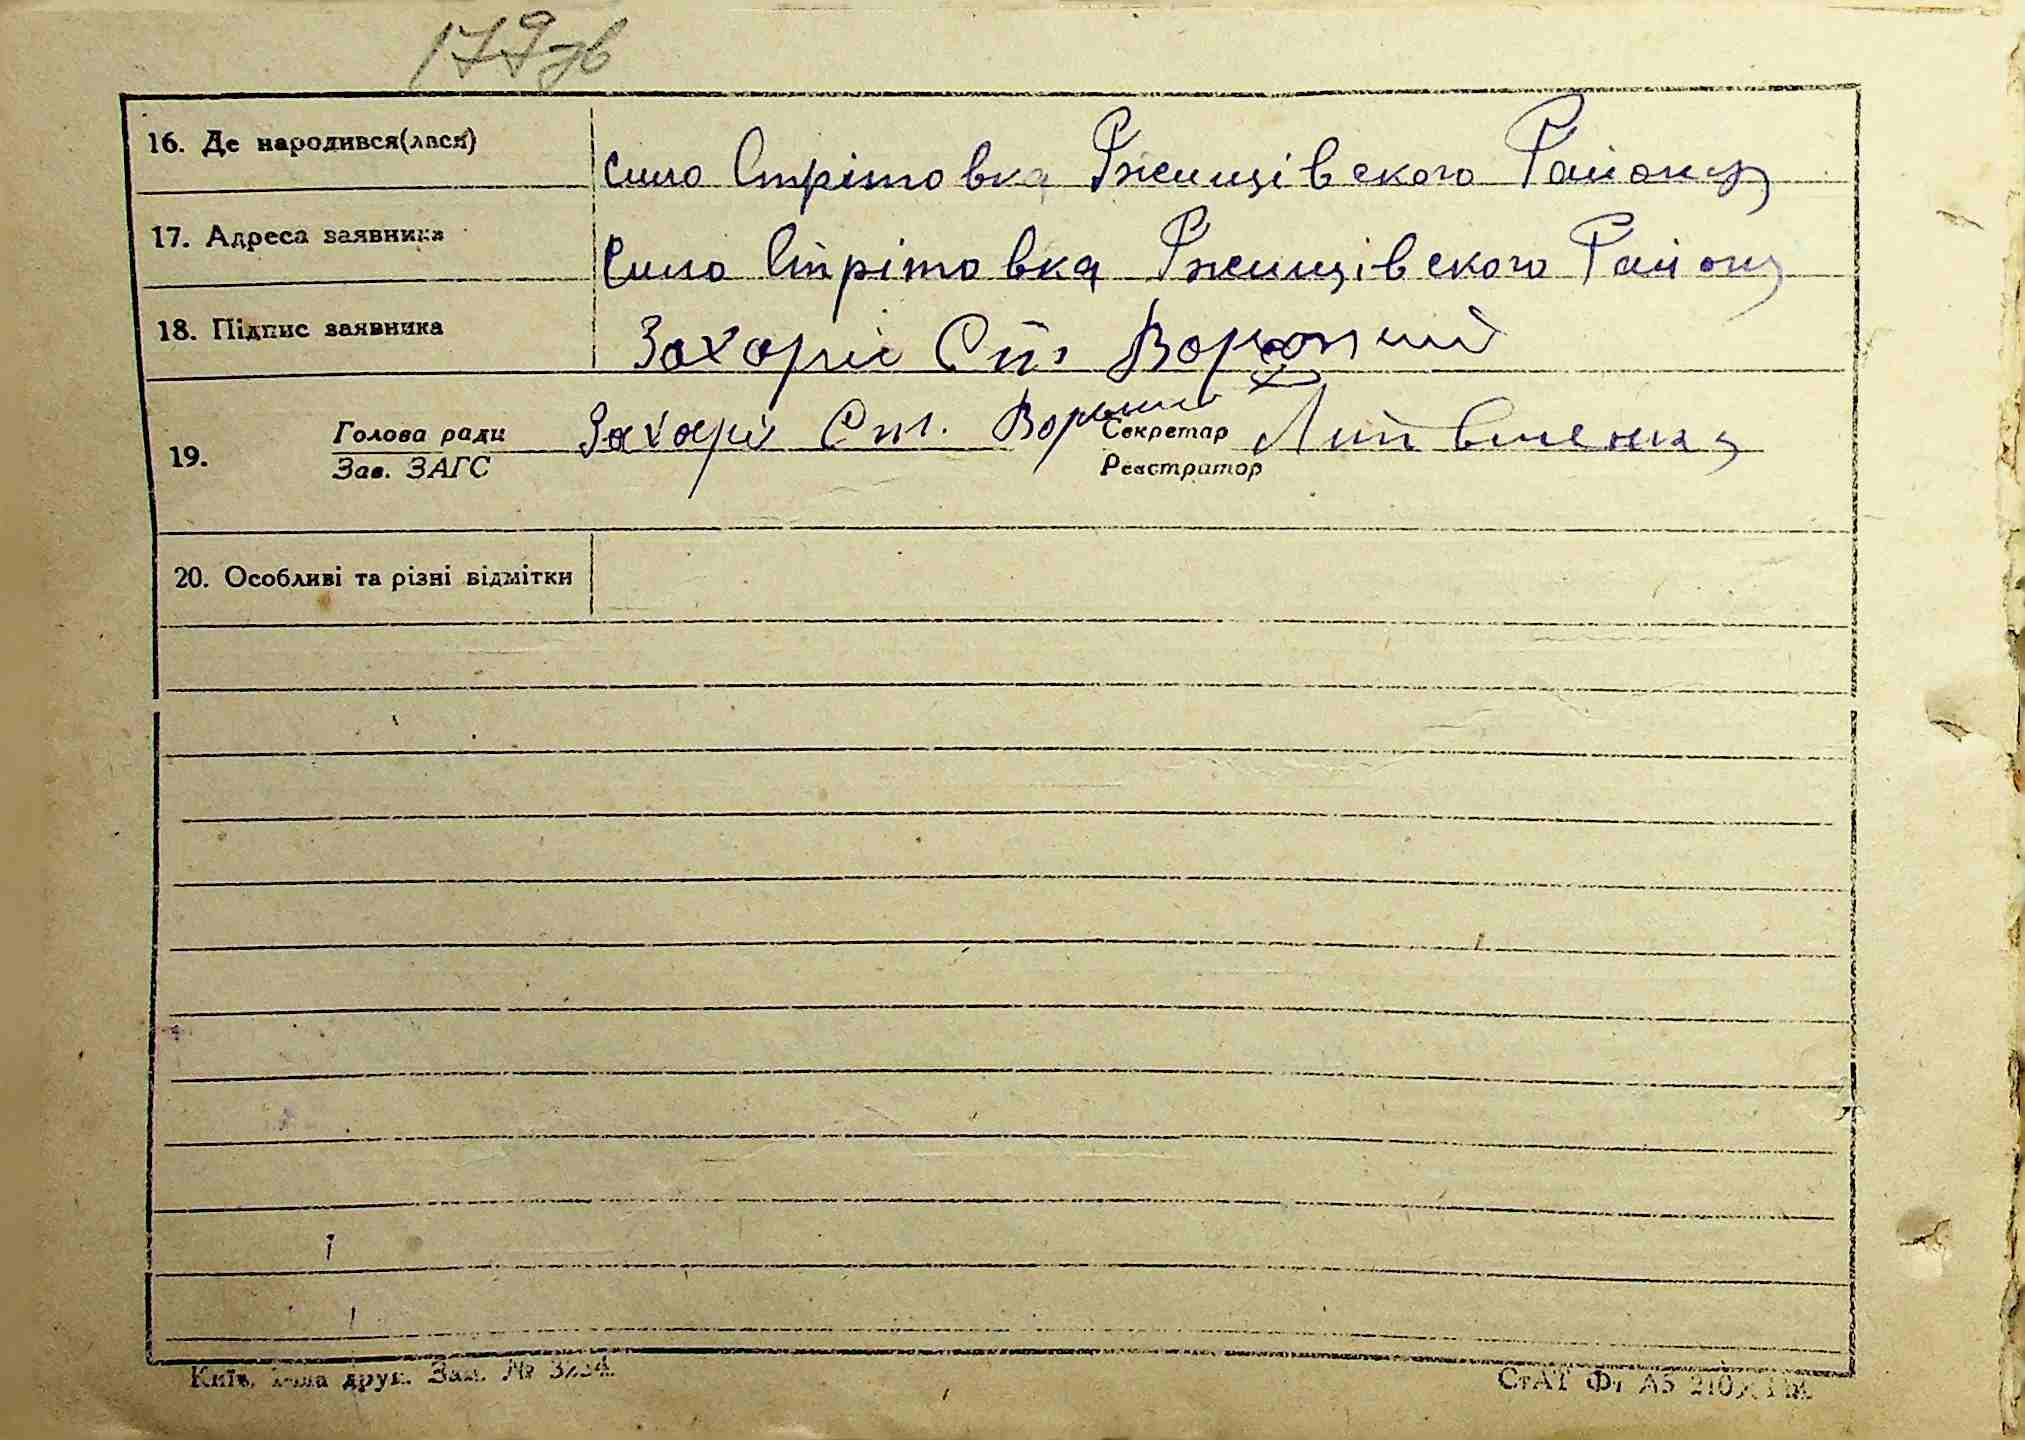 179 зв
16. Де народився(лася) село Стрітовка Ржищівского Району
17. Адреса заявника село Стрітовка Ржищівского Району
18. Підпис заявника Захарій Ст
19. Голова ради Захарій Ст. Секретар Литвиненко
Зав. ЗАГС Реєстратор
20. Особливі та різні відмітки
Київ, друк. Зам. №
СтАТ Фт А5 210